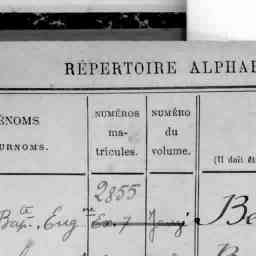 RÉPERTOIRE ALPHAB
ÉNOMS
URNOMS.
NUMÉROS
ma-
tricules.
NUMÉRO
du
volume.
(Il doit êt
2855
Bapte. Eugne Ex. 7
Be